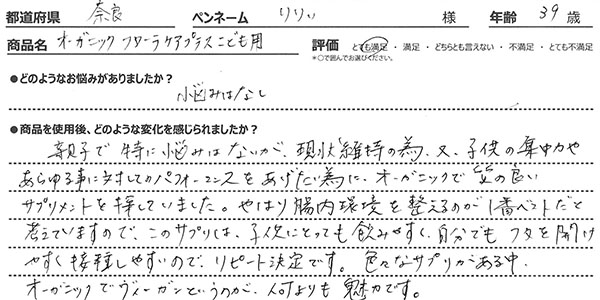 都道府県 奈良 ペンネーム りりぃ 様 年齢 39 歳
商品名 オーガニックフローラケアプラスこども用 評価 とても満足 ・ 満足 ・ どちらとも言えない ・ 不満足 ・ とても不満足
*○で囲んでお選びください。
●どのようなお悩みがありましたか？
悩みはなし
●商品を使用後、どのような変化を感じられましたか？
親子で特に悩みはないが、現状維持の為、又、子供の集中力や
あらゆる事に対してのパフォーマンスをあげたい為に、オーガニックで質の良い
サプリメントを探していました。やはり腸内環境を整えるのが1番ベストだと
考えていますので、このサプリは、子供にとっても飲みやすく、自分でもフタを開け
やすく接種しやすいので、リピート決定です。色々なサプリがある中、
オーガニックでヴィーガンというのが、何よりも魅力です。